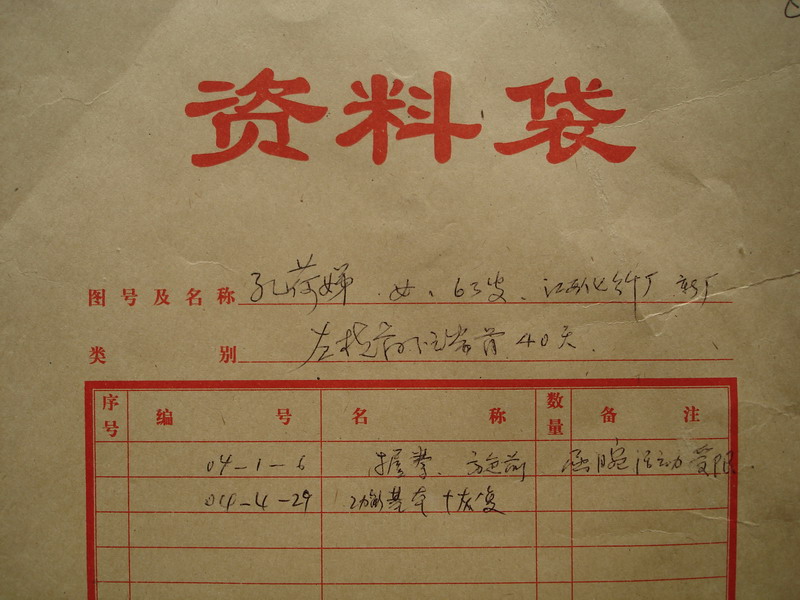 资料袋
图号及名称 孔荷娣 女、63岁、江西化纤厂
类 别 左 40天.
序号 编 号 名 称 数量 备 注
04-1-6 握拳、施前 活动受限.
04-4-29 功能基本恢复